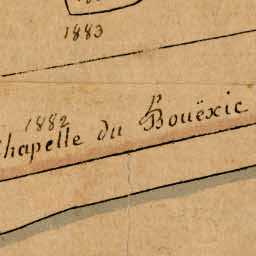 1883
1882
Chapelle du Bouëxic